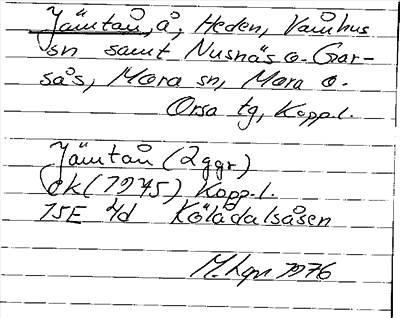 Jämtån, å, Heden, Våmhus
sn samt Nusnäs o. Gar-
sås, Mora sn, Mora o.
Orsa tg, Kopp.l.
Jämtån (2ggr)
ek (1975) Kopp.l.
15E 4d Kölådalsåsen
1976